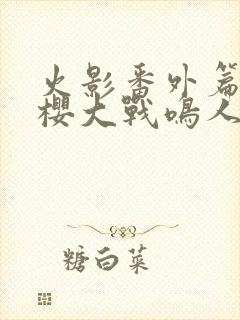 火影番外篇
樱大戰鳴人
糖白菜